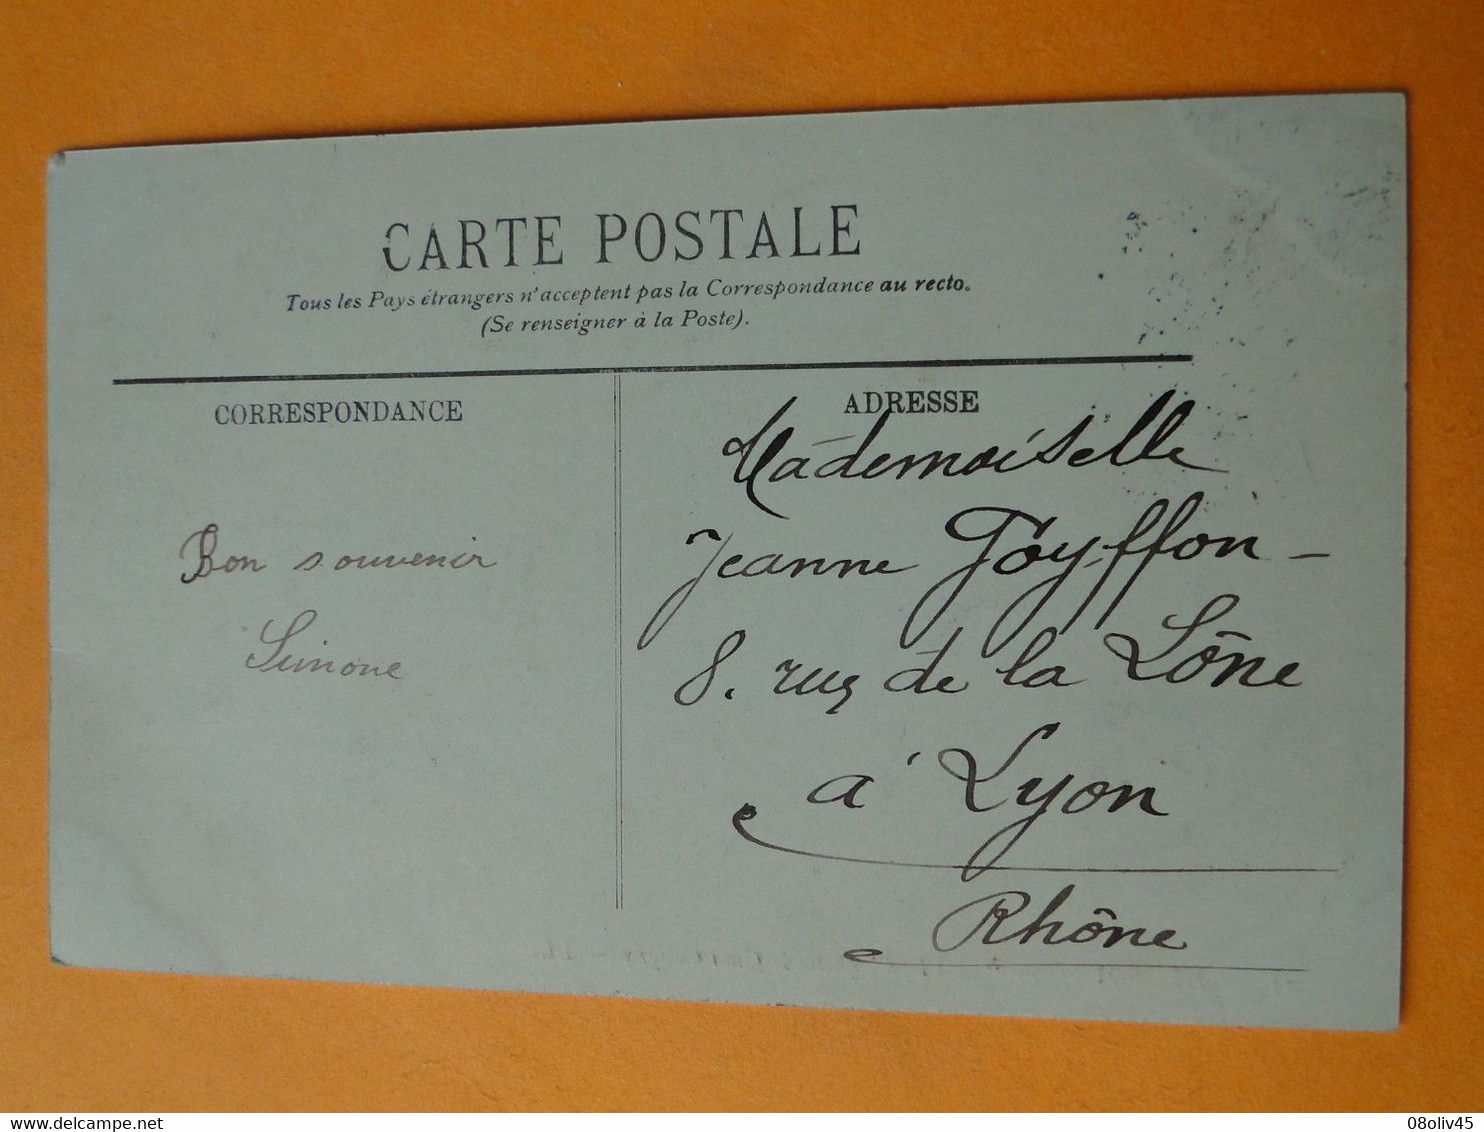 CARTE POSTALE
Tous les Pays étrangers n'acceptent pas la Correspondance au recto.
(Se renseigner à la Poste).
CORRESPONDANCE
ADRESSE
Bon souvenir
Simone
Mademoiselle
Jeanne Joyffon -
8. rue de la Lône
à Lyon
Rhône
08oliv45